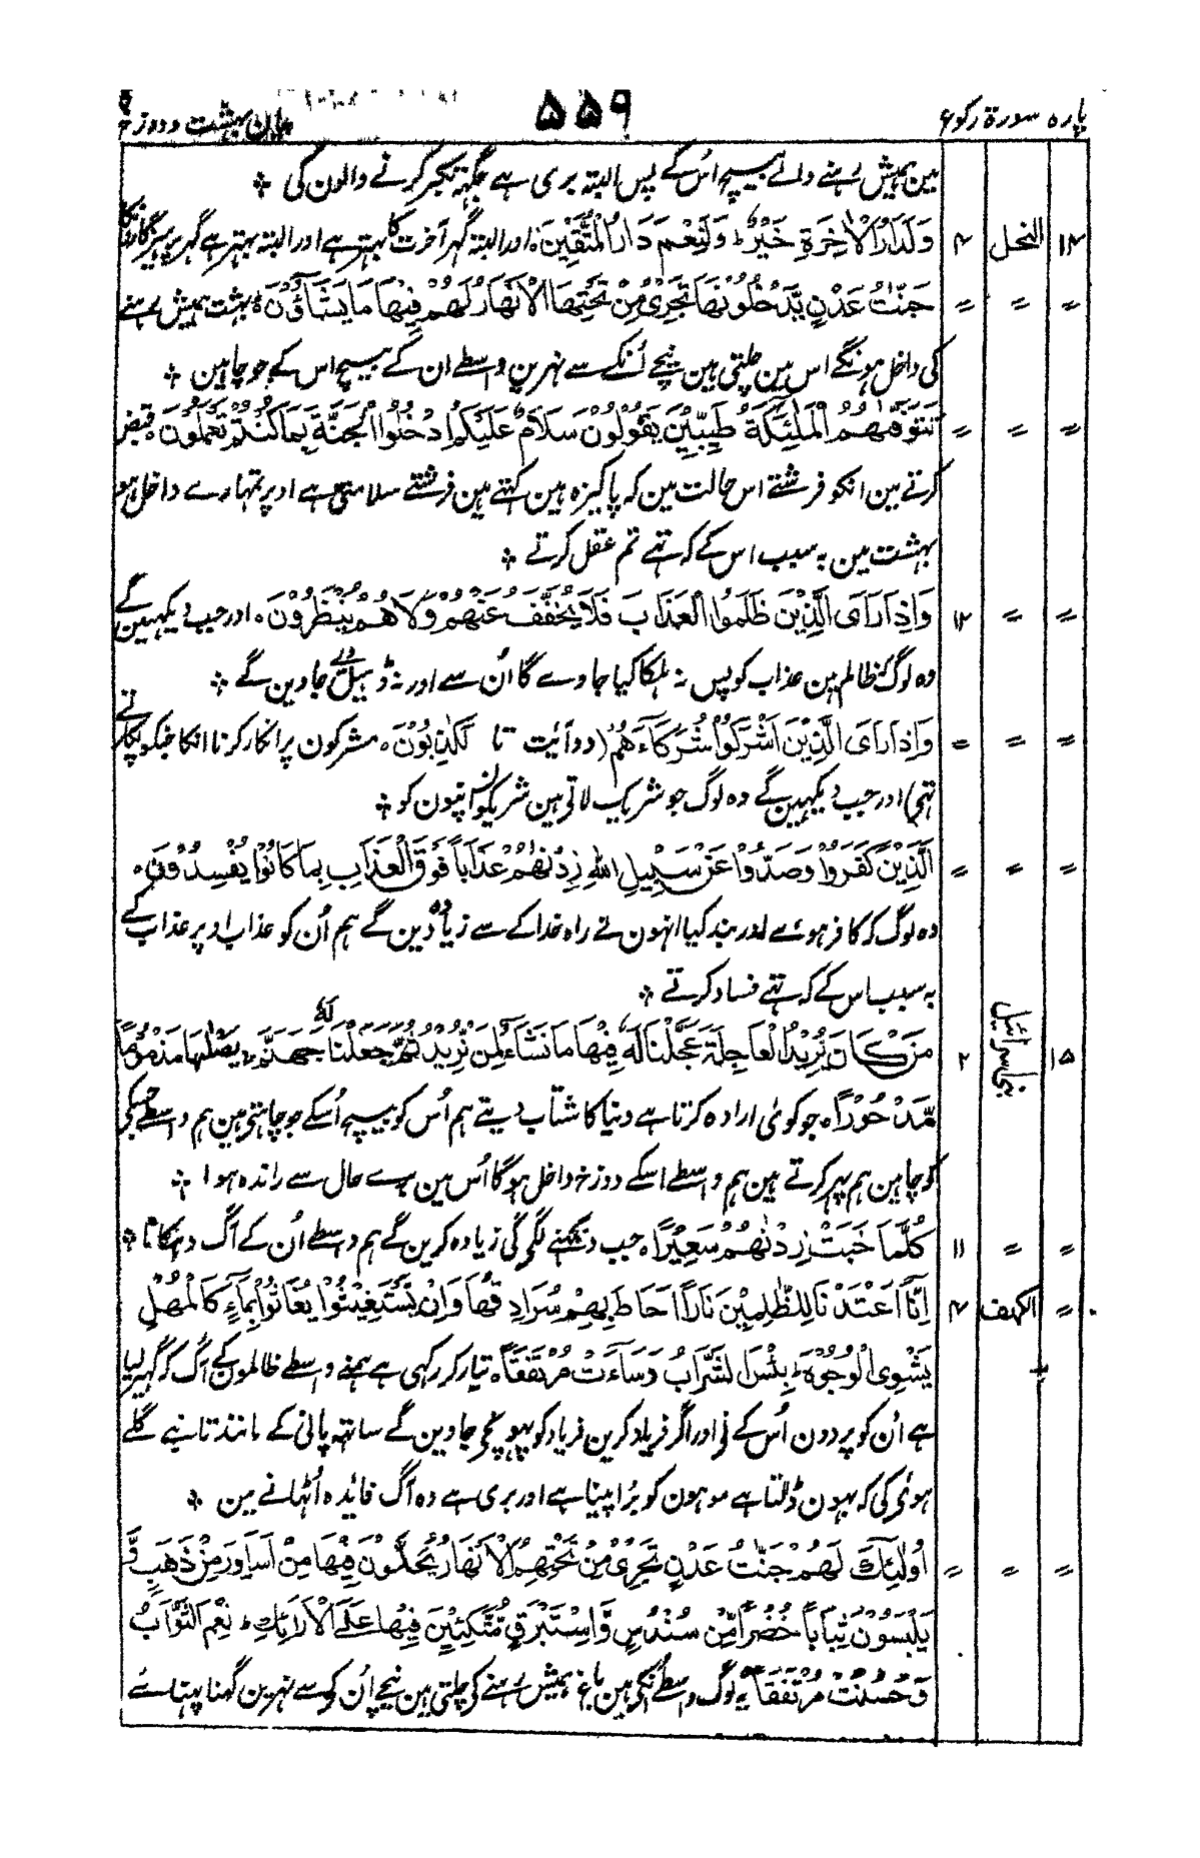 پارہ سورۃ رکوع ۵۵۹ بیان بہشت و دوزخ
ہین ہمیش رہنے والے بیچ اُس کے پس البتہ بری ہے جگہہ تکبر کرنے والون کی ۞
۱۴ النحل ۴ وَلَدَارُ الْاٰخِرَةِ خَيْرٌ ؕ وَلَنِعْمَ دَارُ الْمُتَّقِيْنَ ۙ اور البتہ گہر آخرت کا بہتر ہے اور البتہ بہتر ہے گہر پرہیزگارونکا
〃 〃 〃 جَنّٰتُ عَدْنٍ يَّدْخُلُوْنَهَا تَجْرِيْ مِنْ تَحْتِهَا الْاَنْهَارُ لَهُمْ فِيْهَا مَا يَشَآؤُنَ ؕ بہشت ہمیش رہنے
کی داخل ہونگے اس مین چلتی ہین نیچے اُنکے سے نہرین واسطے ان کے بیچ اس کے جو چاہین ۞
〃 〃 〃 تَتَوَفّٰىهُمُ الْمَلٰٓئِكَةُ طَيِّبِيْنَ يَقُوْلُوْنَ سَلَامٌ عَلَيْكُمُ ادْخُلُوا الْجَنَّةَ بِمَا كُنْتُمْ تَعْمَلُوْنَ ۰ قبض
کرتے ہین انکو فرشتے اس حالت مین کہ پاکیزہ ہین کہتے ہین فرشتے سلامتی ہے اوپر تمہارے داخل ہو
بہشت مین بہ سبب اس کے کہ تہے تم عقل کرتے ۞
〃 〃 ۱۲ وَاِذَا رَاَى الَّذِيْنَ ظَلَمُوا الْعَذَابَ فَلَا يُخَفَّفُ عَنْهُمْ وَلَا هُمْ يُنْظَرُوْنَ ۰ اور جب دیکہین گے
وہ لوگ کہ ظالم ہین عذاب کو پس نہ ہلکا کیا جاوے گا اُن سے اور نہ ڈہیل دئے جاوین گے ۞
〃 〃 〃 وَاِذَا رَاَى الَّذِيْنَ اَشْرَكُوْا شُرَكَآءَهُمْ (دو آئیت تا لَكٰذِبُوْنَ ۰ مشرکون پر انکار کرنا انکا جنکو پکارتے
تہے) اور جب دیکہین گے وہ لوگ جو شریک لاتی ہین شریکون اپنون کو ۞
〃 〃 〃 اَلَّذِيْنَ كَفَرُوْا وَصَدُّوْا عَنْ سَبِيْلِ اللّٰهِ زِدْنٰهُمْ عَذَابًا فَوْقَ الْعَذَابِ بِمَا كَانُوْا يُفْسِدُوْنَ ۰
وہ لوگ کہ کافر ہوئے اور بند کیا انہون نے راہ خدا کے سے زیادہ دین گے ہم اُن کو عذاب اوپر عذاب کے
بہ سبب اس کے کہ تہے فساد کرتے ۞
۱۵ بنی اسرائیل ۲ مَنْ كَانَ يُرِيْدُ الْعَاجِلَةَ عَجَّلْنَا لَهٗ فِيْهَا مَا نَشَآءُ لِمَنْ نُّرِيْدُ ثُمَّ جَعَلْنَا لَهٗ جَهَنَّمَ ۚ يَصْلٰىهَا مَذْمُوْمًا
مَّدْحُوْرًا ۰ جو کوئی ارادہ کرتا ہے دنیا کا شتاب دیتے ہم اُس کو بیچ اُسکے جو چاہتے ہین ہم واسطے جسکی
کو چاہین ہم پہر کرتے ہین ہم واسطے اسکے دوزخ داخل ہوگا اُس مین برے حال سے راندہ ہوا ۞
〃 〃 ۱۱ كُلَّمَا خَبَتْ زِدْنٰهُمْ سَعِيْرًا ۰ جب بجہنے لگے گی زیادہ کرین گے ہم واسطے اُن کے آگ دہکانا ۞
〃 الکہف ۴ اِنَّا اَعْتَدْنَا لِلظّٰلِمِيْنَ نَارًا اَحَاطَ بِهِمْ سُرَادِقُهَا وَاِنْ يَّسْتَغِيْثُوْا يُغَاثُوْا بِمَآءٍ كَالْمُهْلِ
يَشْوِى الْوُجُوْهَ ؕ بِئْسَ الشَّرَابُ وَسَآءَتْ مُرْتَفَقًا ۰ تیار کر رکہی ہے ہمنے واسطے ظالمون کے آگ کہ گہیر لیا
ہے اُن کو پردون اُس کے نے اور اگر فریاد کرین فریاد کو پہونچے جاوین گے ساتہہ پانی کے مانند تانبے گلے
ہوئی کی کہ بہون ڈالتا ہے مونہون کو بُرا پینا ہے اور بری ہے وہ آگ فائدہ اُٹہانے مین ۞
〃 〃 〃 اُولٰٓئِكَ لَهُمْ جَنّٰتُ عَدْنٍ تَجْرِيْ مِنْ تَحْتِهِمُ الْاَنْهَارُ يُحَلَّوْنَ فِيْهَا مِنْ اَسَاوِرَ مِنْ ذَهَبٍ وَّ
يَلْبَسُوْنَ ثِيَابًا خُضْرًا مِّنْ سُنْدُسٍ وَّاِسْتَبْرَقٍ مُّتَّكِئِيْنَ فِيْهَا عَلَى الْاَرَآئِكِ ؕ نِعْمَ الثَّوَابُ
وَحَسُنَتْ مُرْتَفَقًا یہ لوگ واسطے اُنکے ہین باغ ہمیش رہنے کی چلتی ہین نیچے اُن کے سے نہرین گہنا پہنائے